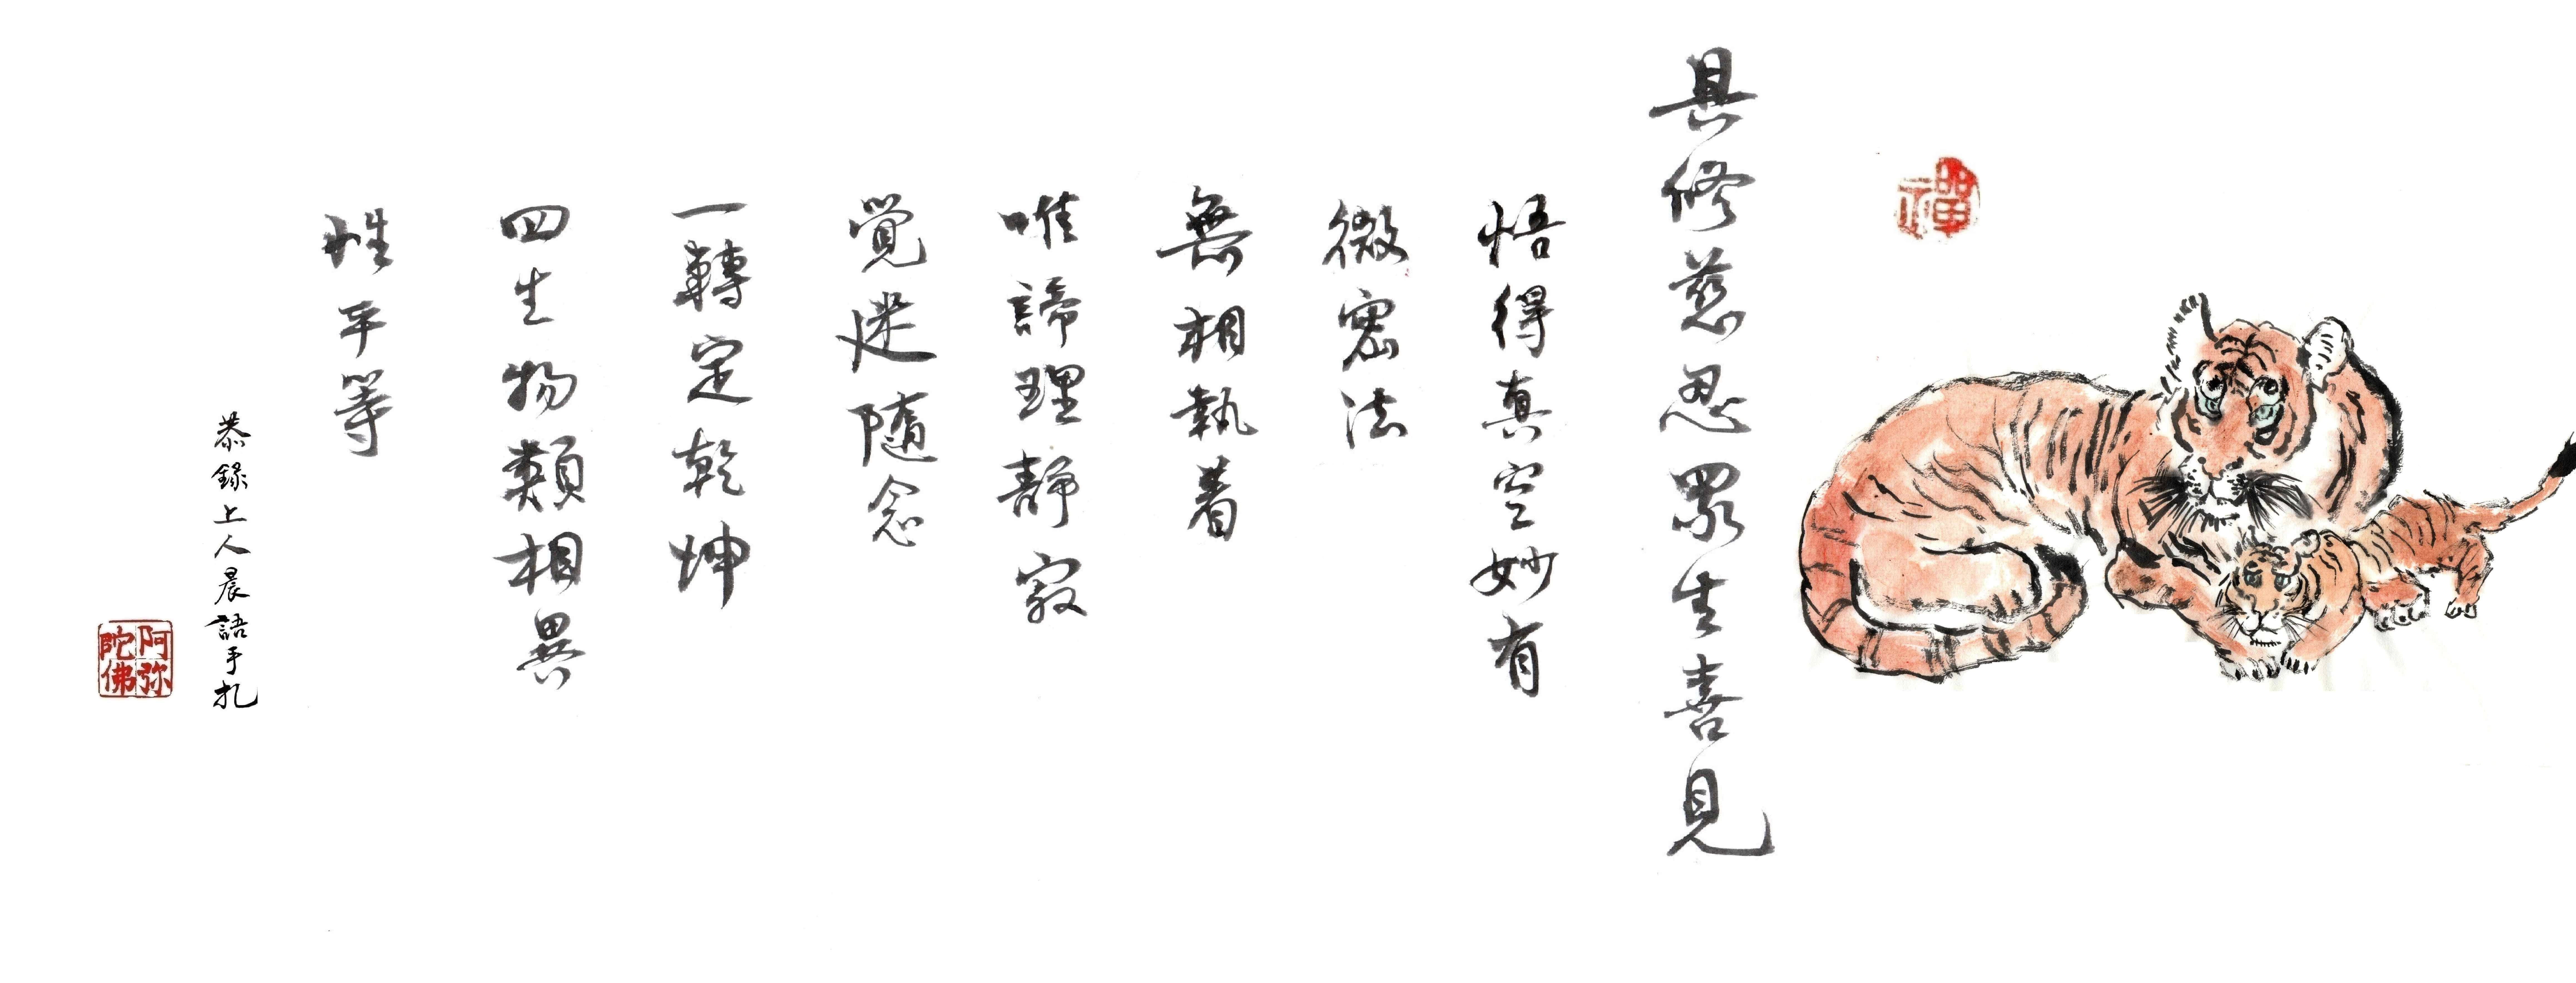 禪
具修慈忍眾生喜見
悟得真空妙有
微密法
無相執着
唯諦理靜寂
覺迷隨念
一轉定乾坤
四生物類相異
性平等
恭錄上人晨語手札
阿弥陀佛